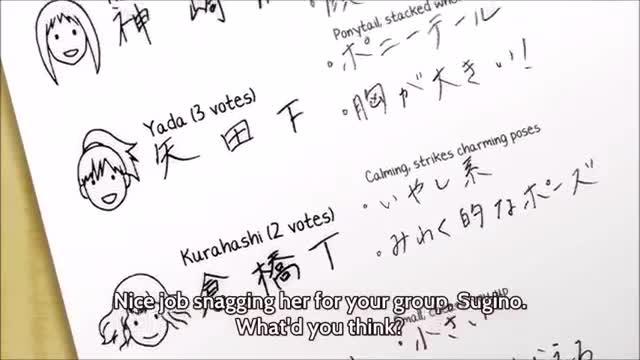 神崎
Ponytail, stacked
・ポニーテール
・胸が大きい!
Yada (3 votes)
矢田 下
Calming, strikes charming poses
・いやし系
・みわく的なポーズ
Kurahashi (2 votes)
倉橋 丁
Nice job snagging her for your group, Sugino.
What'd you think?
・小さい